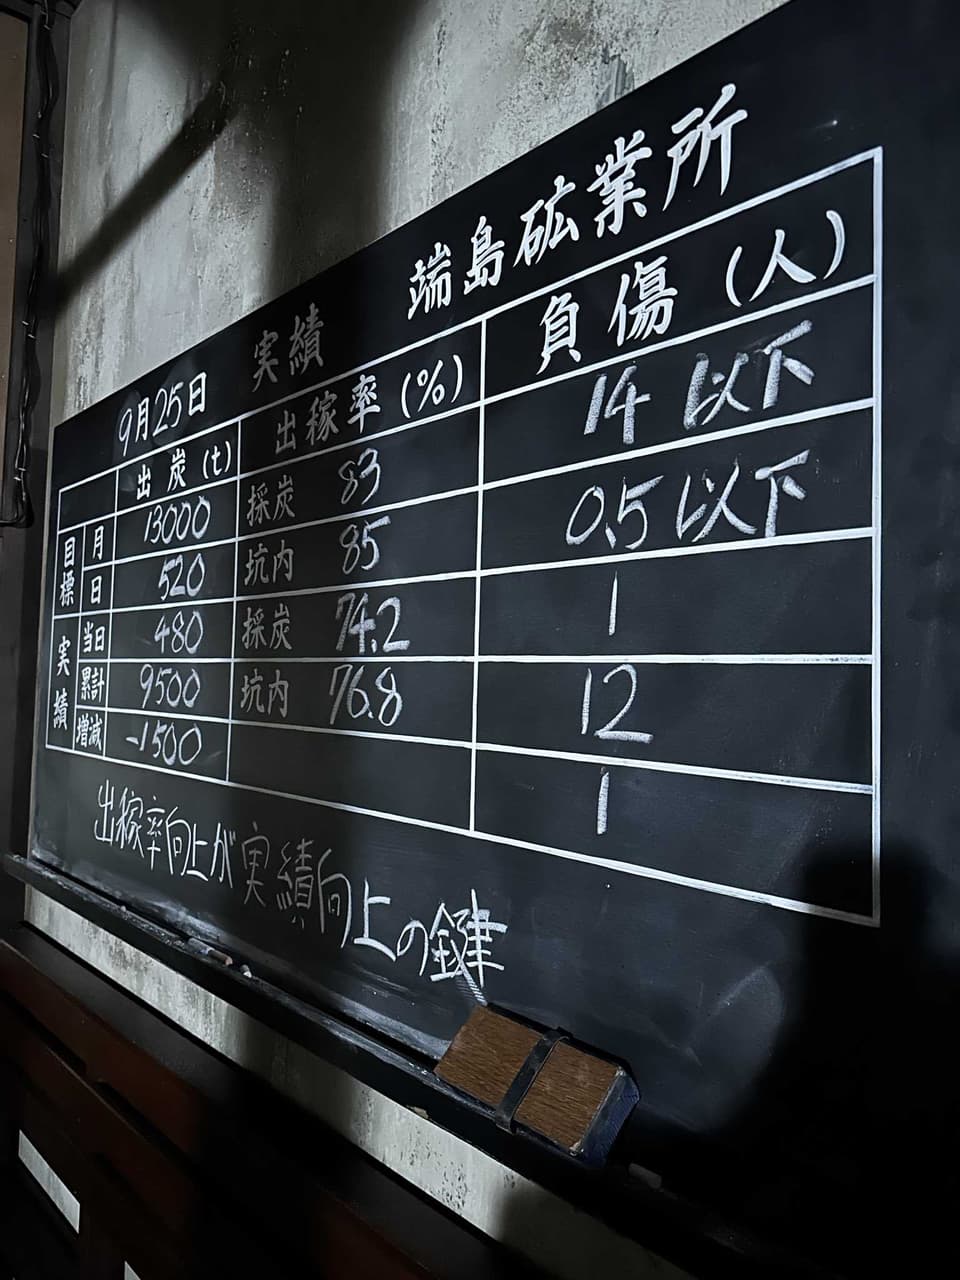 端島砿業所
9月25日 実績
出炭(t) 出稼率(%) 負傷(人)
目標 月 13000 採炭 83 14以下
日 520 坑内 85 0.5以下
実績 当日 480 採炭 74.2 1
累計 9500 坑内 76.8 12
増減 -1500 1
出稼率向上が実績向上の鍵